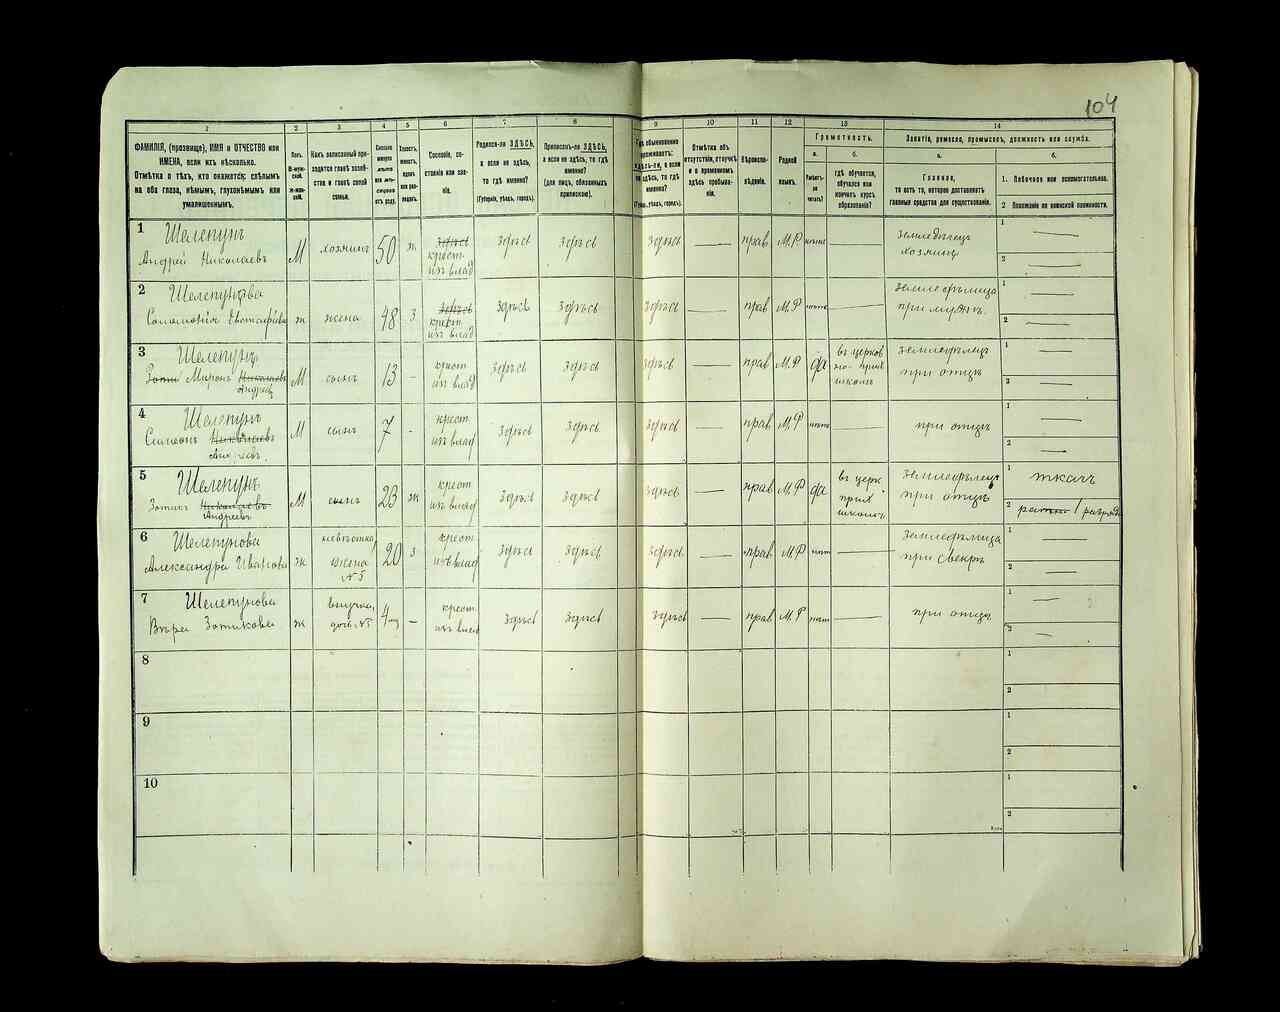 104
1 2 3 4 5 6 7 8 9 10 11 12 13 14
ФАМИЛІЯ, (прозвище), ИМЯ и ОТЧЕСТВО или
ИМЕНА, если ихъ нѣсколько.
Отмѣтка о тѣхъ, кто окажется: слѣпымъ
на оба глаза, нѣмымъ, глухонѣмымъ или
умалишеннымъ.
Полъ.
М-муж-
ской.
ж-жен-
скій.
Какъ записанный при-
ходится главѣ хозяй-
ства и главѣ своей
семьи.
Сколько
минуло
лѣтъ
или мѣ-
сяцевъ
отъ роду.
Холостъ,
женатъ,
вдовъ
или раз-
веденъ.
Сословіе, со-
стояніе или зва-
ніе.
Родился-ли ЗДѢСЬ,
а если не здѣсь,
то гдѣ именно?
(Губернія, уѣздъ, городъ).
Приписанъ-ли ЗДѢСЬ,
а если не здѣсь, то гдѣ
именно?
(для лицъ, обязанныхъ
припискою).
Гдѣ обыкновенно
проживаетъ:
здѣсь-ли, а если
не здѣсь, то гдѣ
именно?
(Губ., уѣздъ, городъ).
Отмѣтка объ
отсутствіи, отлучкѣ
и о временномъ
здѣсь пребыва-
ніи.
Вѣроиспо-
вѣданіе.
Родной
языкъ.
Грамотность.
а. б.
Умѣетъ-
ли
читать?
гдѣ обучается,
обучался или
кончилъ курсъ
образованія?
Занятіе, ремесло, промыселъ, должность или служба.
а. б.
Главное,
то есть то, которое доставляетъ
главныя средства для существованія.
1. Побочное или вспомогательное.
2 Положеніе по воинской повинности.
1 Шелепунъ
Андрей Николаевъ М хозяинъ 50 ж здѣсь крест. изъ влад здѣсь здѣсь здѣсь — прав М.Р нѣтъ — земледѣлецъ хозяинъ 1 — 2 —
2 Шелепунова
Соломонія Евстафіева ж жена 48 з здѣсь крест. изъ влад здѣсь здѣсь здѣсь — прав М.Р нѣтъ — земледѣлица при мужѣ. 1 — 2 —
3 Шелепунъ
Зоти Миронъ Николаевъ Андреевъ М сынъ 13 - крест изъ влад здѣсь здѣсь здѣсь — прав М.Р да въ церков но-прих школѣ земледѣлецъ при отцѣ 1 — 2 —
4 Шелепунъ
Симеонъ Николаевъ Андреевъ М сынъ 7 - крест. изъ влад здѣсь здѣсь здѣсь — прав М.Р нѣтъ — при отцѣ 1 — 2 —
5 Шелепунъ
Зотикъ Николаевъ Андреевъ М сынъ 23 ж крест изъ влад здѣсь здѣсь здѣсь — прав М.Р да въ церк прих школѣ земледѣлецъ при отцѣ 1 ткачъ 2 ратник 1 разряда
6 Шелепунова
Александра Иванова ж невѣстка, жена №5 20 з крест. изъ влад здѣсь здѣсь здѣсь — прав М.Р нѣтъ — земледѣлица при свекрѣ 1 — 2 —
7 Шелепунова
Вѣра Зотикова ж внучка, дочь №5 4 мц — крест. изъ влад здѣсь здѣсь здѣсь — прав М.Р нѣтъ — при отцѣ 1 — 2 —
8 1 2
9 1 2
10 1 2